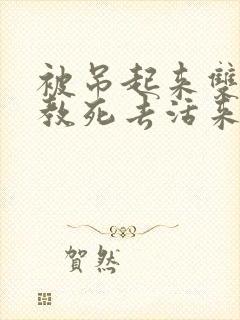 被吊起来双
教死去活来
贺然